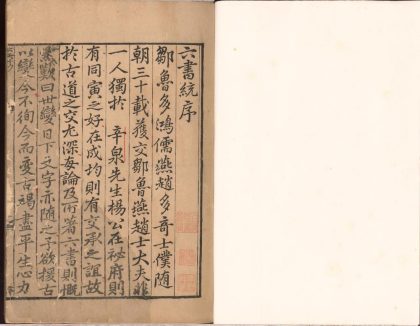 六書統序
鄒魯多鴻儒燕趙多奇士僕随
朝三十載獲交鄒魯燕趙士大夫非
一人獨於 辛泉先生楊公在祕府則
有同寅之好在成均則有交承之誼故
於古道之交尤深每論及所著六書則慨
然歎曰世變日下文字亦随之予欲援古
以變今不徇今而愛古竭盡平生心力